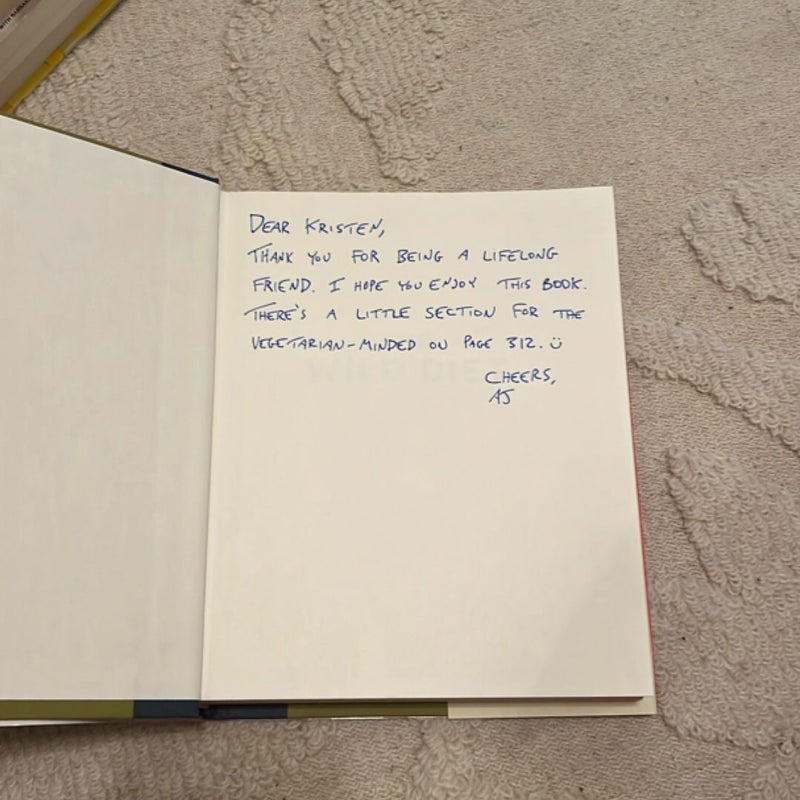 DEAR KRISTEN,
THANK YOU FOR BEING A LIFELONG
FRIEND. I HOPE YOU ENJOY THIS BOOK.
THERE'S A LITTLE SECTION FOR THE
VEGETARIAN-MINDED ON PAGE 312. Ü
CHEERS,
AJ
WILD DIET